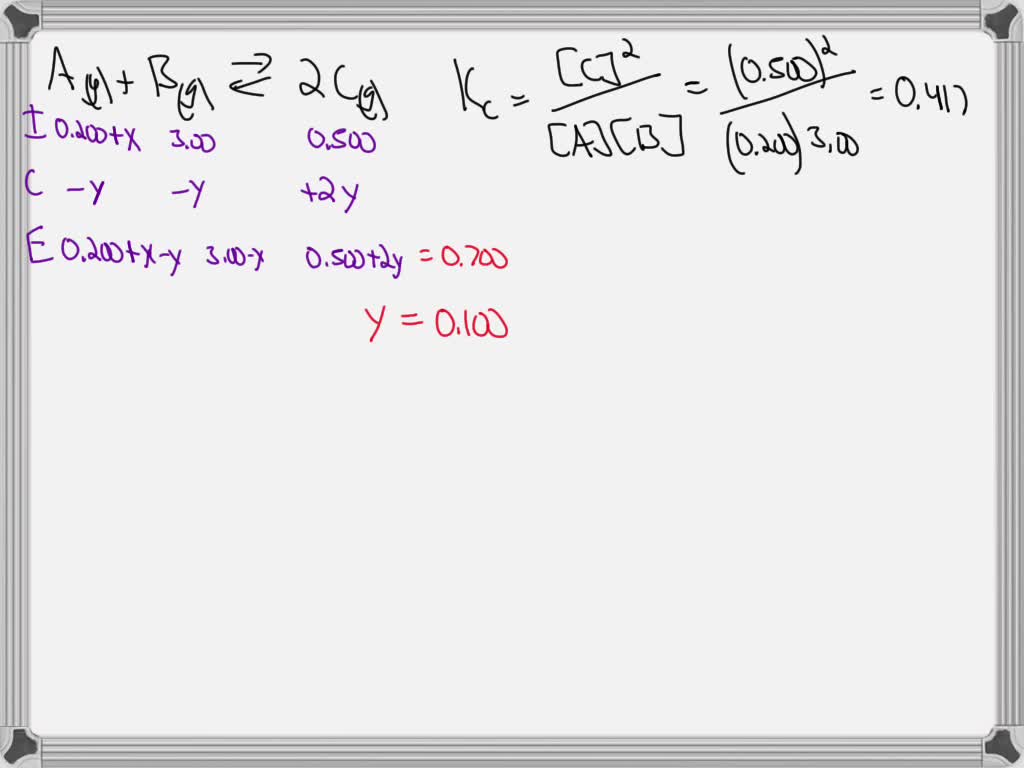 A(g) + B(g) ⇌ 2C(g)   Kc = [C]² / [A][B] = (0.500)² / (0.200)3.00 = 0.417
I 0.200+x 3.00 0.500
C -y -y +2y
E 0.200+x-y 3.00-y 0.500+2y = 0.700
y = 0.100